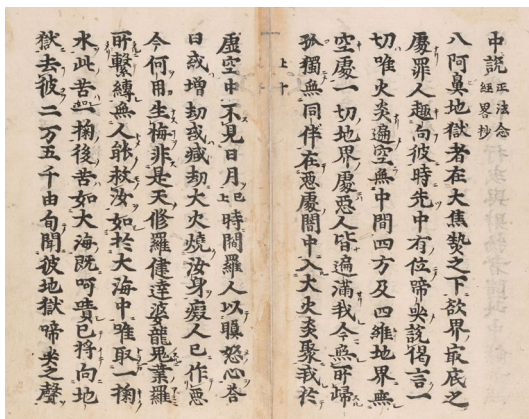 中說 正法念經畧抄
八阿鼻地獄者在大焦熱之下欲界㝡底之
處罪人趣向彼時先中有位啼哭說偈言一
切唯火炎遍空無中間四方及四維地界無
空處一切地界處惡人皆遍滿我今無所歸
孤獨無同伴在惡處闇中入大火炎聚我於
上十
虛空中不見日月已上時閻羅人以瞋怒心答
曰或增劫或減劫大火燒汝身癡人已作惡
今何用生悔非是天修羅健達婆龍鬼業羅
所繫縛無人能救汝如於大海中唯取一掬
水此苦一掬後苦如大海既呵嘖已將向地
獄去彼二万五千由旬聞彼地獄啼哭之聲